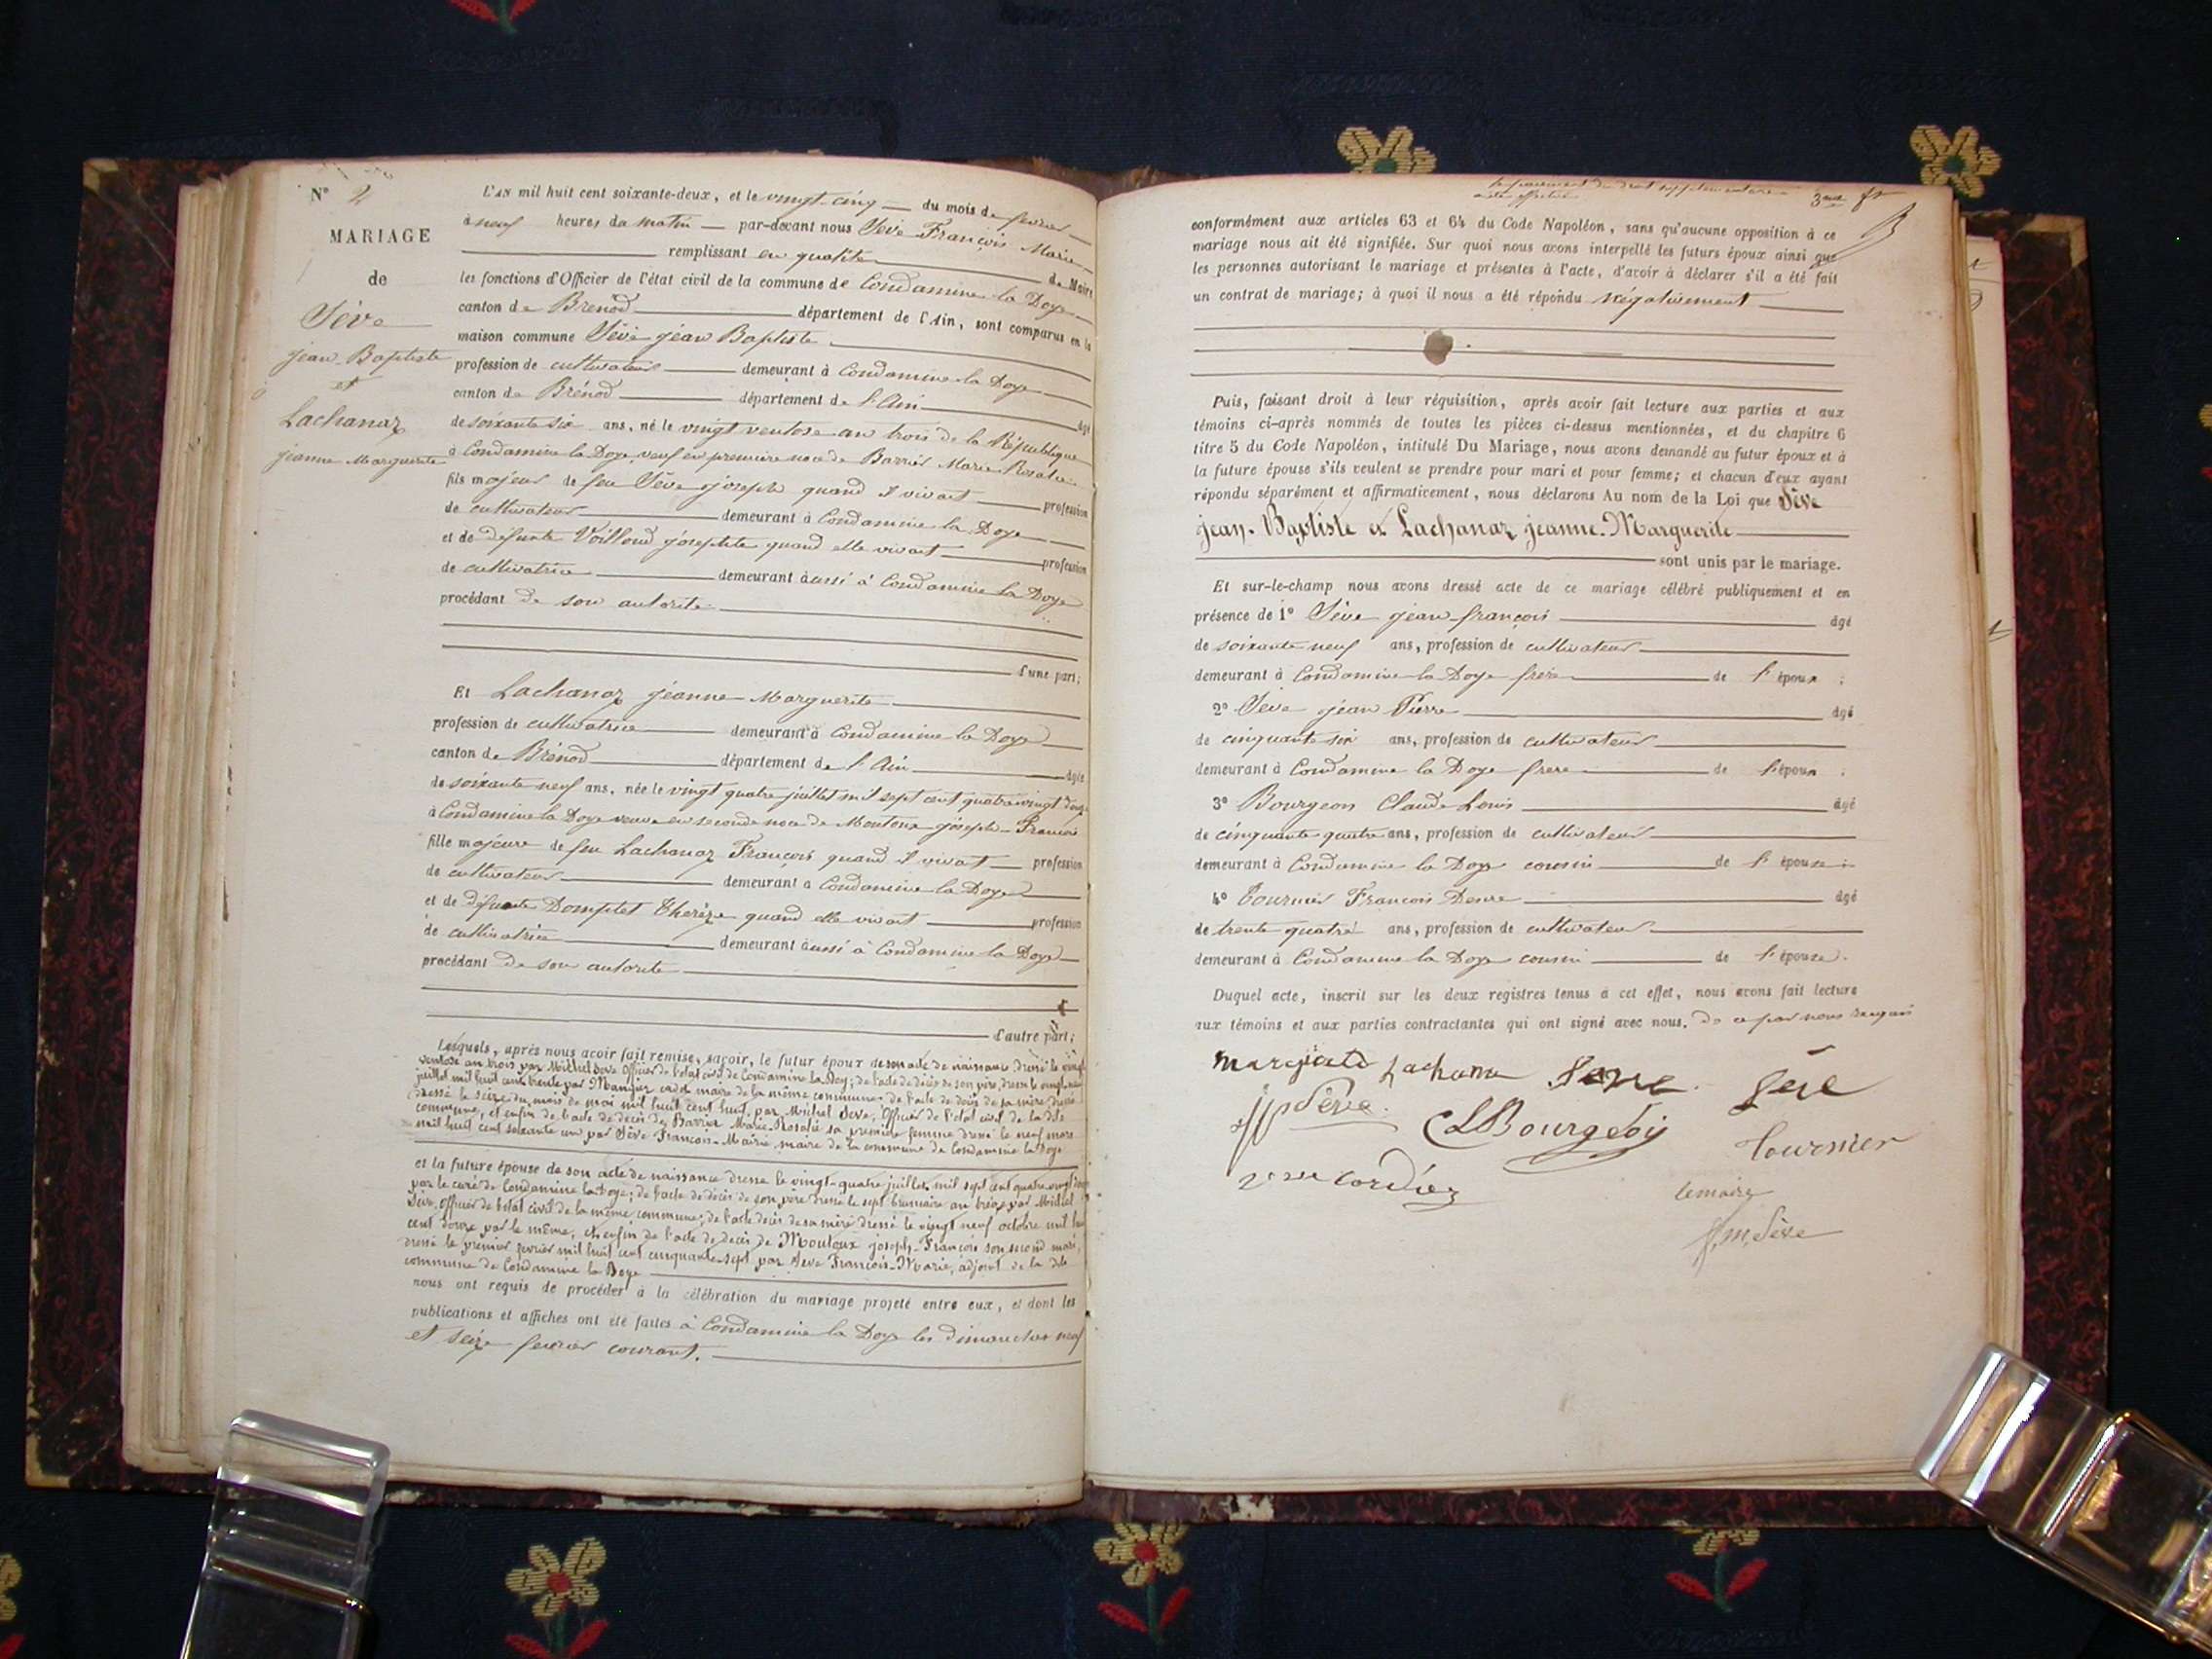 N° 2
MARIAGE
de
Sève
jean Baptiste
et
Lachanaz
jeanne Marguerite
L'AN mil huit cent soixante-deux, et le vingt cinq du mois de fevrier
à neuf heures du matin par-devant nous Sève François Marie
remplissant en qualité de Maire
les fonctions d'Officier de l'état civil de la commune de Condamine la Doye
canton de Brenod département de l'Ain, sont comparus en la
maison commune Sève jéan Baptiste
profession de cultivateur demeurant à Condamine la Doye
canton de Brénod département de l'Ain âgé
de soixante six ans, né le vingt ventose an trois de la République
à Condamine la Doye, veuf en premiere noce de Barrier Marie Rosalie
fils majeur de feu Sève joseph quand il vivait profession
de cultivateur demeurant à Condamine la Doye
et de défunte Voilloud josephte quand elle vivait profession
de cultivatrice demeurant à aussi à Condamine la Doye
procédant de son autorité
d'une part;
Et Lachanaz jéanne Marguerite
profession de cultivatrice demeurant à Condamine la Doye
canton de Brénod département de l'Ain âgée
de soixante neuf ans, née le vingt quatre juillet mil sept cent quatre vingt douze
à Condamine la Doye veuve en seconde noce de Moutoux joseph-François
fille majeure de feu Lachanaz François quand il vivait profession
de cultivateur demeurant à Condamine la Doye
et de défunte Domptet Thérèze quand elle vivait profession
de cultivatrice demeurant à aussi à Condamine la Doye
procédant de son autorité
d'autre part;
Lesquels, après nous avoir fait remise, savoir, le futur époux de son acte de naissance dressé le vingt
ventose an trois par Michel Sève Officier de l'état civil de Condamine la Doye; de l'acte de décès de son père, dressé le vingt
juillet mil huit cent trente par cadet maire de la même commune; de l'acte de décès de sa mère dressé
dressé le seize du mois de mai mil huit cent huit, par Michel Sève, Officier de l'état civil de la dite
commune, et enfin de l'acte de décès de Barrier Marie-Rosalie sa première femme dressé le neuf mars
mil huit cent soixante un par Sève François-Marie maire de la commune de Condamine la Doye
et la future épouse de son acte de naissance dressé le vingt-quatre juillet mil sept cent quatre vingt douze
par le curé de Condamine la Doye; de l'acte de décès de son père dressé le sept brumaire an treize par Michel
Sève, Officier de l'état civil de la même commune; de l'acte décès de sa mère dressé le vingt neuf octobre mil huit
cent douze par le même, et enfin de l'acte de décès de Moutoux joseph-François son second mari,
dressé le premier fevrier mil huit cent cinquante-sept par Sève François-Marie, adjoint de la dite
commune de Condamine la Doye
nous ont requis de procéder à la célébration du mariage projeté entre eux, et dont les
publications et affiches ont été faites à Condamine la Doye les dimanches neuf
et seize fevrier courant.
3me
conformément aux articles 63 et 64 du Code Napoléon, sans qu'aucune opposition à ce
mariage nous ait été signifiée. Sur quoi nous avons interpellé les futurs époux ainsi que
les personnes autorisant le mariage et présentes à l'acte, d'avoir à déclarer s'il a été fait
un contrat de mariage; à quoi il nous a été répondu négativement
Puis, faisant droit à leur réquisition, après avoir fait lecture aux parties et aux
témoins ci-après nommés de toutes les pièces ci-dessus mentionnées, et du chapitre 6
titre 5 du Code Napoléon, intitulé Du Mariage, nous avons demandé au futur époux et à
la future épouse s'ils veulent se prendre pour mari et pour femme; et chacun d'eux ayant
répondu séparément et affirmativement, nous déclarons Au nom de la Loi que Sève
jean-Baptiste et Lachanaz jeanne-Marguerite
sont unis par le mariage.
Et sur-le-champ nous avons dressé acte de ce mariage célébré publiquement et en
présence de 1° Sève jéan françois âgé
de soixante neuf ans, profession de cultivateur
demeurant à Condamine la Doye frère de l'époux;
2° Sève jéan Pierre âgé
de cinquante six ans, profession de cultivateur
demeurant à Condamine la Doye frere de l'époux;
3° Bourgeois Claude Louis âgé
de cinquante quatre ans, profession de cultivateur
demeurant à Condamine la Doye cousin de l'épouse
4° Tournier François Desire âgé
de trente quatre ans, profession de cultivateur
demeurant à Condamine la Doye cousin de l'épouse.
Duquel acte, inscrit sur les deux registres tenus à cet effet, nous avons fait lecture
aux témoins et aux parties contractantes qui ont signé avec nous. de a par nous
Lachana Seve Seve
jp Sève CLBourgeois Tournier
le maire
f,m, Sève